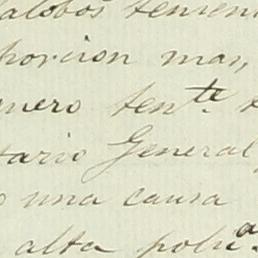 alobos tenien
porcion mas,
mero tente
tario General
una causa
alta polic